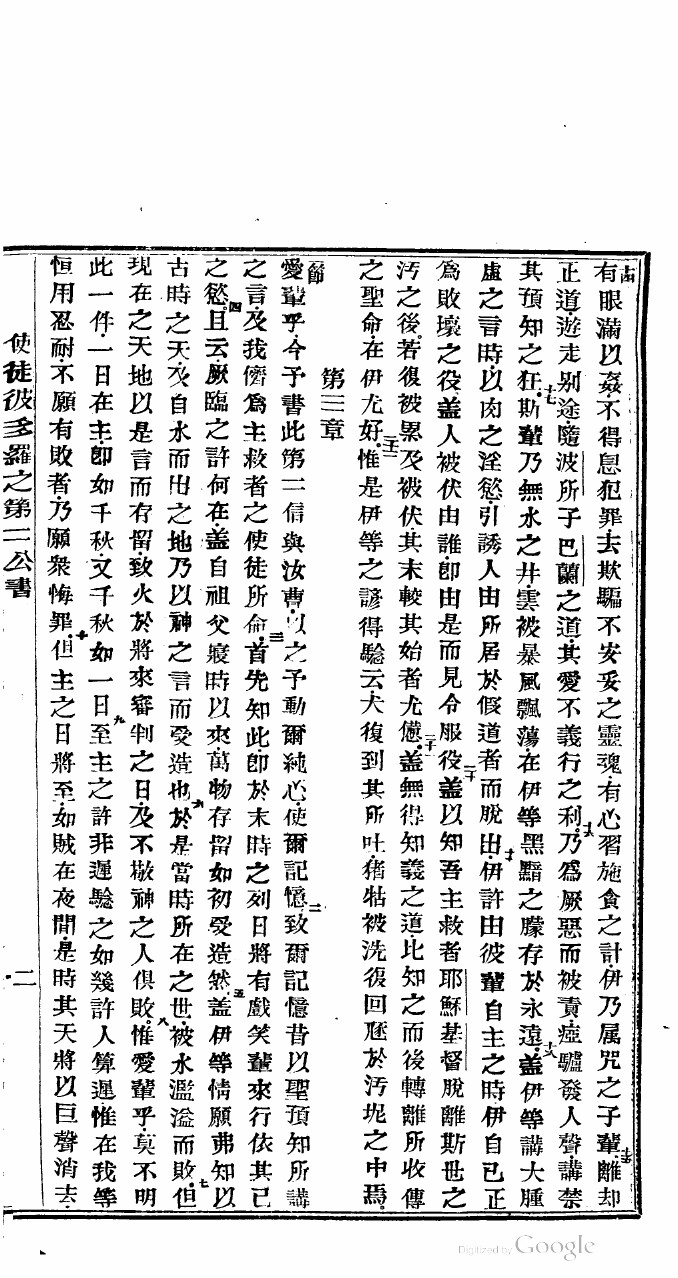 古有眼滿以姦不得息犯罪去欺騙不安妥之靈魂有心習施貪之計伊乃属咒之子輩十五離却
正道遊走别途隨波所子巴蘭之道其愛不義行之利十六乃為厥惡而被責瘂驢發人聲講禁
其預知之狂十七斯輩乃無水之井雲被暴風飄蕩在伊等黑黯之朦存於永遠十八蓋伊等講大腫
虛之言時以肉之淫慾引誘人由所居於假道者而脫出十九伊許由彼輩自主之時伊自己正
為敗壞之役蓋人被伏由誰即由是而見令服役二十蓋以知吾主救者耶穌基督脫離斯世之
污之後若復被累及被伏其末較其始者尤憊二十一蓋無得知義之道比知之而後轉離所收傳
之聖命在伊尤好二十二惟是伊等之諺得騐云犬復到其所吐猪牯被洗復回於污坭之中焉
第三章
一節愛輩乎今予書此第二信與汝曹以之予動爾純心使爾記憶二致爾記憶昔以聖預知所講
之言及我儕為主救者之使徒所命三首先知此即於末時之列日將有戲笑輩來行依其己
之慾四且云厥臨之許何在蓋自祖父寢時以來萬物存留如初受造然五蓋伊等情願弗知以
古時之天及自水而出之地乃以神之言而受造也六於是當時所在之世被水濫溢而敗七但
現在之天地以是言而存留致火於將來審判之日及不敬神之人俱敗八惟愛輩乎莫不明
此一件一日在主即如千秋又千秋如一日九至主之許非遲騐之如幾許人算遲惟在我等
恒用忍耐不願有敗者乃願衆悔罪十但主之日將至如賊在夜間是時其天將以巨聲消去
使徒彼多羅之第二公書
二
Digitized by Google